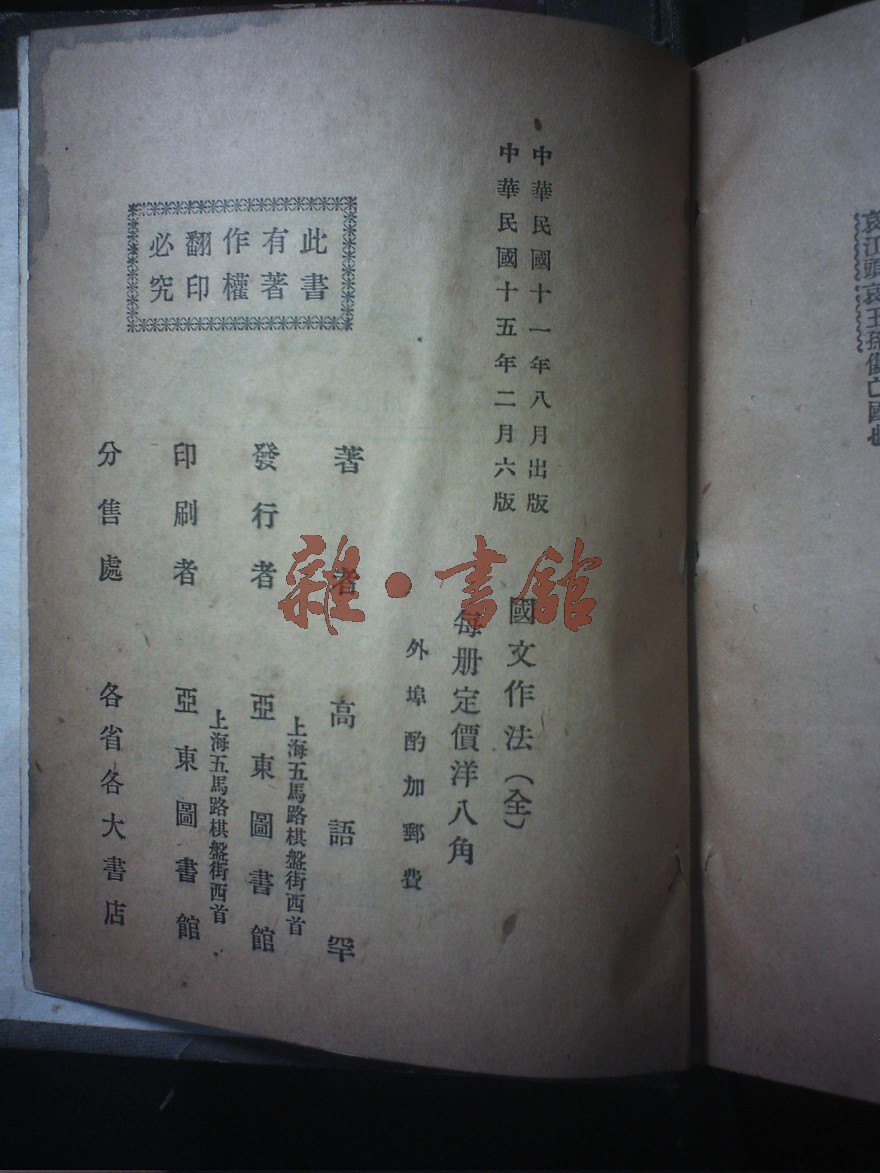 中華民國十一年八月出版
中華民國十五年二月六版
國文作法（全）
每册定價洋八角
外埠酌加郵費
此書
有著
作權
翻印
必究
著者 高語罕
發行者 亞東圖書館
上海五馬路棋盤街西首
印刷者 亞東圖書館
上海五馬路棋盤街西首
分售處 各省各大書店
雜·書館
哀江頭哀王孫傷亡國也